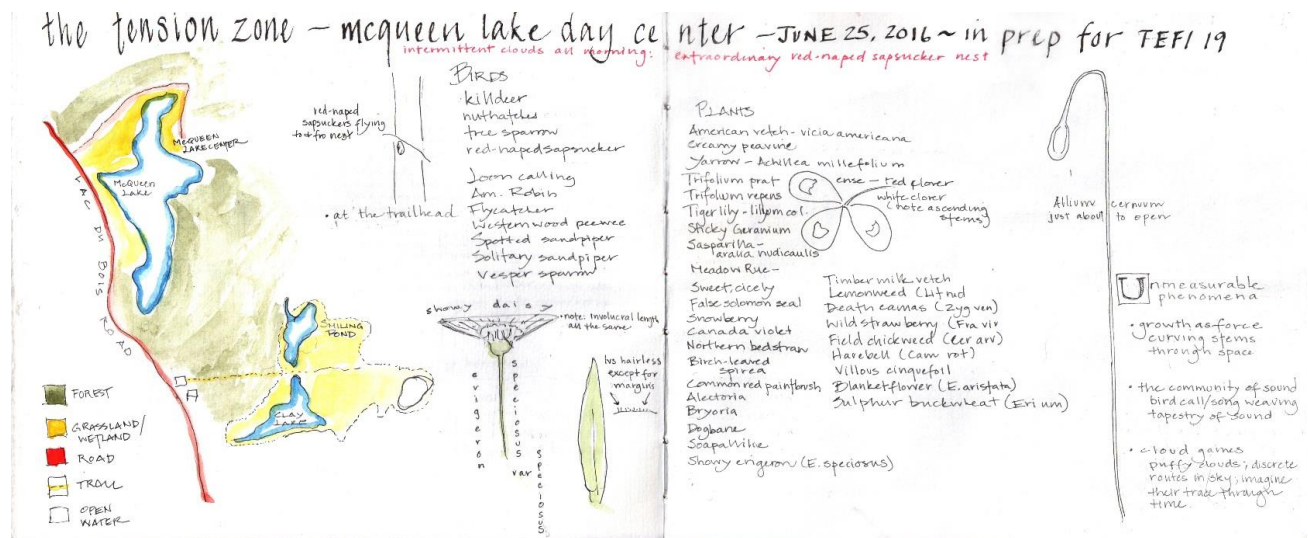 the tension zone - mcqueen lake day center - JUNE 25, 2016 ~ in prep for TEFI 19
intermittent clouds all morning: extraordinary red-naped sapsucker nest
McQUEEN
LAKE CENTER
McQueen
Lake
LAC DU BOIS ROAD
SMILING
POND
CLAY
LAKE
FOREST
GRASSLAND/
WETLAND
ROAD
TRAIL
OPEN
WATER
red-naped
sapsuckers flying
to & fro nest
• at the trailhead
BIRDS
killdeer
nuthatches
tree sparrow
red-naped sapsucker
Loon calling
Am. Robin
Flycatcher
Western wood peewee
Spotted sandpiper
Solitary sandpiper
Vesper sparrow
showy daisy
• note: involucral length
all the same
erigeron
speciosus var
speciosus
lvs hairless
except for
margins
PLANTS
American vetch - vicia americana
Creamy peavine
Yarrow - Achillea millefolium
Trifolium pratense - red clover
Trifolium repens white clover
(note ascending
stems)
Tiger lily - lilium col.
Sticky Geranium
Sasparilla -
aralia nudicaulis
Meadow Rue -
Sweet, cicely
False solomon seal
Snowberry
Canada violet
Northern bedstraw
Birch-leaved
spirea
Common red paintbrush
Alectoria
Bryoria
Dogbane
Soapallilie
Showy erigeron (E. speciosus)
Timber milk vetch
Lemonweed (Lit rud
Death camas (Zyg ven)
Wild strawberry (Fra vir
Field chickweed (Cer arv)
Harebell (Cam rot)
Villous cinquefoil
Blanketflower (E. aristata)
Sulphur buckwheat (Eri um)
Allium cernum
just about to open
Unmeasurable
phenomena
• growth as force
curving stems
through space
• the community of sound
bird call/song weaving
tapestry of sound
• cloud games
puffy clouds; discrete
routes in sky; imagine
their trace through
time.